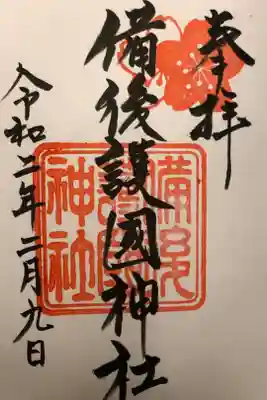 奉拝
備後護國神社
令和二年二月九日
備後護國神社